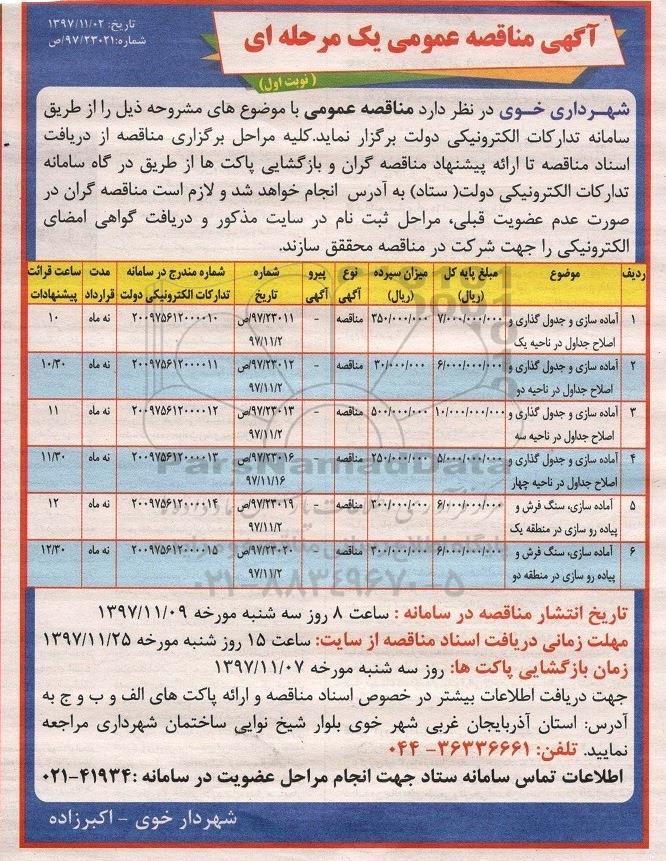 تاریخ: ۱۳۹۷/۱۱/۰۲
شماره:۹۷/۲۳۰۲۱/ص
آگهی مناقصه عمومی یک مرحله ای
( نوبت اول)
شهرداری خوی در نظر دارد مناقصه عمومی با موضوع های مشروحه ذیل را از طریق
سامانه تدارکات الکترونیکی دولت برگزار نماید.کلیه مراحل برگزاری مناقصه از دریافت
اسناد مناقصه تا ارائه پیشنهاد مناقصه گران و بازگشایی پاکت ها از طریق در گاه سامانه
تدارکات الکترونیکی دولت( ستاد) به آدرس انجام خواهد شد و لازم است مناقصه گران در
صورت عدم عضویت قبلی، مراحل ثبت نام در سایت مذکور و دریافت گواهی امضای
الکترونیکی را جهت شرکت در مناقصه محققق سازند.
ردیف موضوع مبلغ پایه کل میزان سپرده نوع پیرو شماره شماره مندرج در سامانه مدت ساعت قرائت
(ریال) (ریال) آگهی آگهی تاریخ تدارکات الکترونیکی دولت قرارداد پیشنهادات
۱ آماده سازی و جدول گذاری و ۷/۰۰۰/۰۰۰/۰۰۰ ۳۵۰/۰۰۰/۰۰۰ مناقصه - ۹۷/۲۳۰۱۱/ص ۲۰۰۹۷۵۶۱۲۰۰۰۰۱۰ نه ماه ۱۰
اصلاح جداول در ناحیه یک ۹۷/۱۱/۲
۲ آماده سازی و جدول گذاری و ۶/۰۰۰/۰۰۰/۰۰۰ ۳۰/۰۰۰/۰۰۰ مناقصه - ۹۷/۲۳۰۱۲/ص ۲۰۰۹۷۵۶۱۲۰۰۰۰۱۱ نه ماه ۱۰/۳۰
اصلاح جداول در ناحیه دو ۹۷/۱۱/۲
۳ آماده سازی و جدول گذاری و ۱۰/۰۰۰/۰۰۰/۰۰۰ ۵۰۰/۰۰۰/۰۰۰ مناقصه - ۹۷/۲۳۰۱۳/ص ۲۰۰۹۷۵۶۱۲۰۰۰۰۱۲ نه ماه ۱۱
اصلاح جداول در ناحیه سه ۹۷/۱۱/۲
۴ آماده سازی و جدول گذاری و ۵/۰۰۰/۰۰۰/۰۰۰ ۲۵۰/۰۰۰/۰۰۰ مناقصه - ۹۷/۲۳۰۱۶/ص ۲۰۰۹۷۵۶۱۲۰۰۰۰۱۳ نه ماه ۱۱/۳۰
اصلاح جداول در ناحیه چهار ۹۷/۱۱/۱۶
۵ آماده سازی، سنگ فرش و ۶/۰۰۰/۰۰۰/۰۰۰ ۳۰۰/۰۰۰/۰۰۰ مناقصه - ۹۷/۲۳۰۱۹/ص ۲۰۰۹۷۵۶۱۲۰۰۰۰۱۴ نه ماه ۱۲
پیاده رو سازی در منطقه یک ۹۷/۱۱/۲
۶ آماده سازی، سنگ فرش و ۶/۰۰۰/۰۰۰/۰۰۰ ۳۰۰/۰۰۰/۰۰۰ مناقصه - ۹۷/۲۳۰۲۰/ص ۲۰۰۹۷۵۶۱۲۰۰۰۰۱۵ نه ماه ۱۲/۳۰
پیاده رو سازی در منطقه دو ۹۷/۱۱/۲
ParsNamadData
۰۲۱-۸۸۳۴۹۶۷۰-۵
تاریخ انتشار مناقصه در سامانه : ساعت ۸ روز سه شنبه مورخه ۱۳۹۷/۱۱/۰۹
مهلت زمانی دریافت اسناد مناقصه از سایت: ساعت ۱۵ روز شنبه مورخه ۱۳۹۷/۱۱/۲۵
زمان بازگشایی پاکت ها: روز سه شنبه مورخه ۱۳۹۷/۱۱/۰۷
جهت دریافت اطلاعات بیشتر در خصوص اسناد مناقصه و ارائه پاکت های الف و ب و ج به
آدرس: استان آذربایجان غربی شهر خوی بلوار شیخ نوایی ساختمان شهرداری مراجعه
نمایید. تلفن: ۳۶۳۳۶۶۶۱- ۰۴۴
اطلاعات تماس سامانه ستاد جهت انجام مراحل عضویت در سامانه :۴۱۹۳۴-۰۲۱
شهردار خوی - اکبرزاده